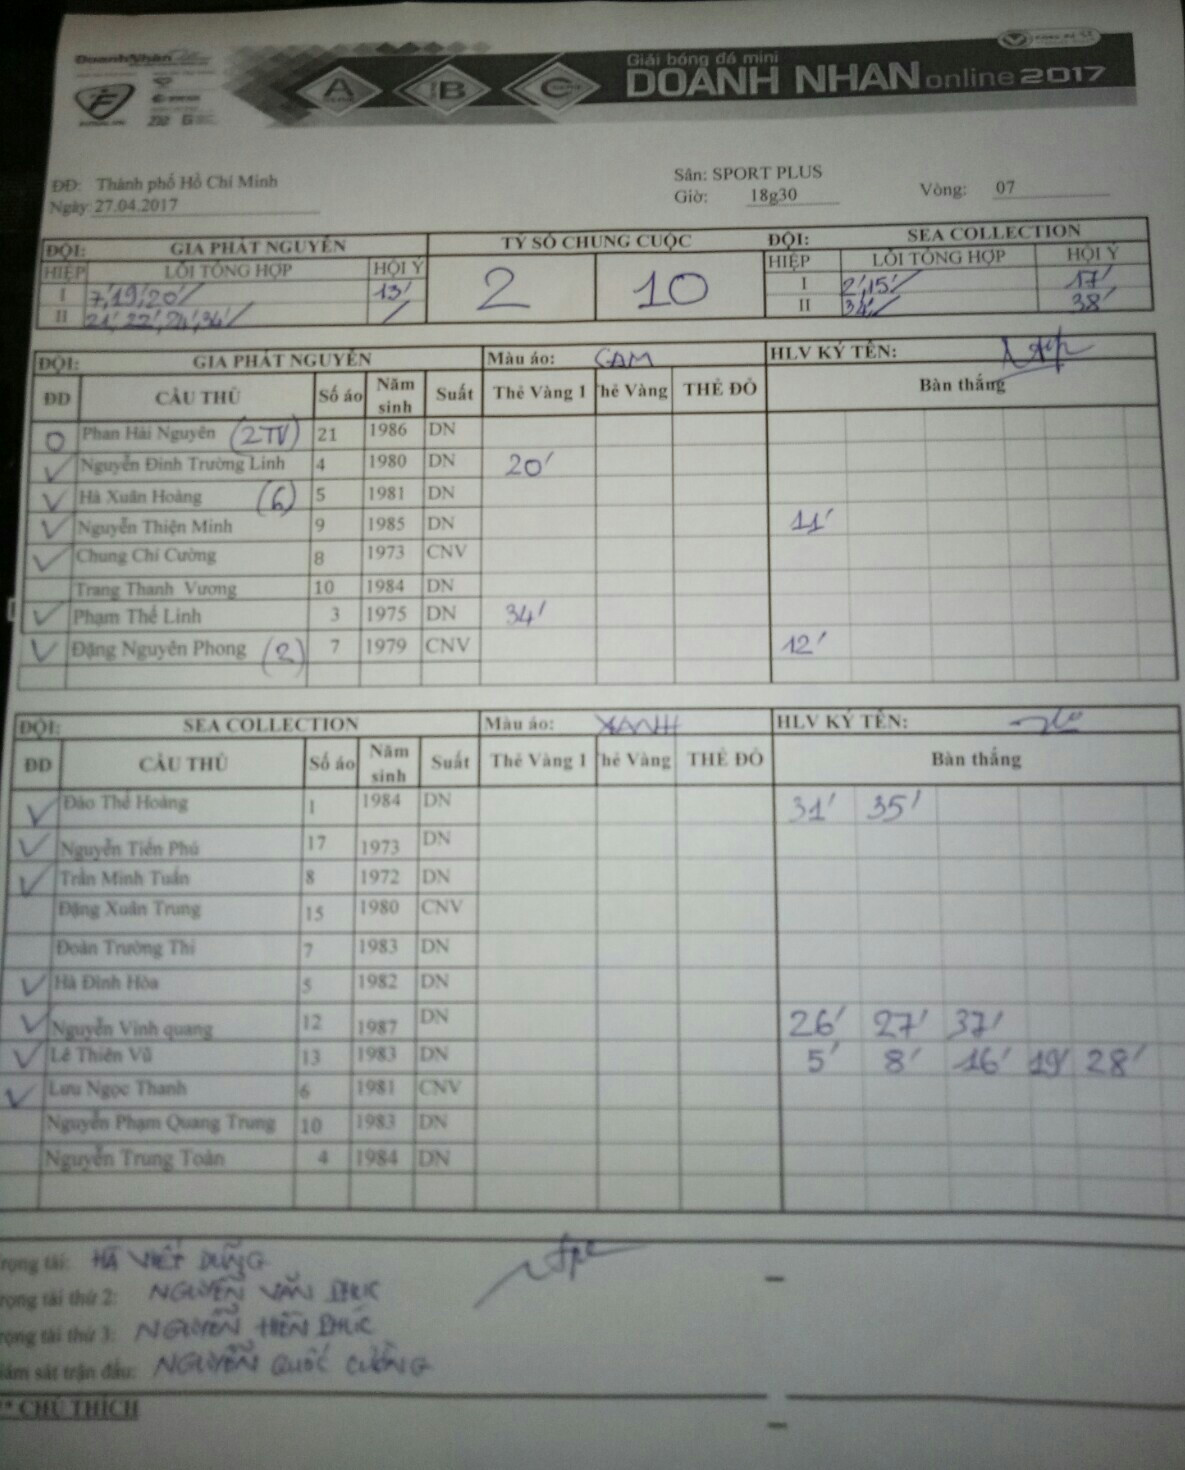 DoanhNhân
A B C
Giải bóng đá mini
DOANH NHAN online 2017
ĐĐ: Thành phố Hồ Chí Minh
Sân: SPORT PLUS
Ngày: 27.04.2017
Giờ: 18g30
Vòng: 07
ĐỘI: GIA PHÁT NGUYỄN TỶ SỐ CHUNG CUỘC ĐỘI: SEA COLLECTION
HIỆP LỖI TỔNG HỢP HỘI Ý 2 10 HIỆP LỖI TỔNG HỢP HỘI Ý
I 7', 19', 20' 13' I 2', 15' 17'
II 21', 22', 24', 34' II 34' 38'
ĐỘI: GIA PHÁT NGUYỄN Màu áo: CAM HLV KÝ TÊN:
ĐD CẦU THỦ Số áo Năm sinh Suất Thẻ Vàng 1 Thẻ Vàng THẺ ĐỎ Bàn thắng
O Phan Hải Nguyên (2TV) 21 1986 DN
✓ Nguyễn Đình Trường Linh 4 1980 DN 20'
✓ Hà Xuân Hoàng (6) 5 1981 DN
✓ Nguyễn Thiện Minh 9 1985 DN 11'
✓ Chung Chí Cường 8 1973 CNV
Trang Thanh Vương 10 1984 DN
✓ Phạm Thế Linh 3 1975 DN 34'
✓ Đặng Nguyên Phong (2) 7 1979 CNV 12'
ĐỘI: SEA COLLECTION Màu áo: XANH HLV KÝ TÊN:
ĐD CẦU THỦ Số áo Năm sinh Suất Thẻ Vàng 1 Thẻ Vàng THẺ ĐỎ Bàn thắng
✓ Đào Thế Hoàng 1 1984 DN 31' 35'
✓ Nguyễn Tiến Phú 17 1973 DN
✓ Trần Minh Tuấn 8 1972 DN
Đặng Xuân Trung 15 1980 CNV
Đoàn Trường Thi 7 1983 DN
✓ Hà Đình Hòa 5 1982 DN
✓ Nguyễn Vinh quang 12 1987 DN 26' 27' 37'
✓ Lê Thiên Vũ 13 1983 DN 5' 8' 16' 19' 28'
✓ Lưu Ngọc Thanh 6 1981 CNV
Nguyễn Phạm Quang Trung 10 1983 DN
Nguyễn Trung Toàn 4 1984 DN
rọng tài: HÀ VIẾT DŨNG
rọng tài thứ 2: NGUYỄN VĂN
rọng tài thứ 3: NGUYỄN HIỀN
iám sát trận đấu: NGUYỄN QUỐC CƯỜNG
** CHÚ THÍCH